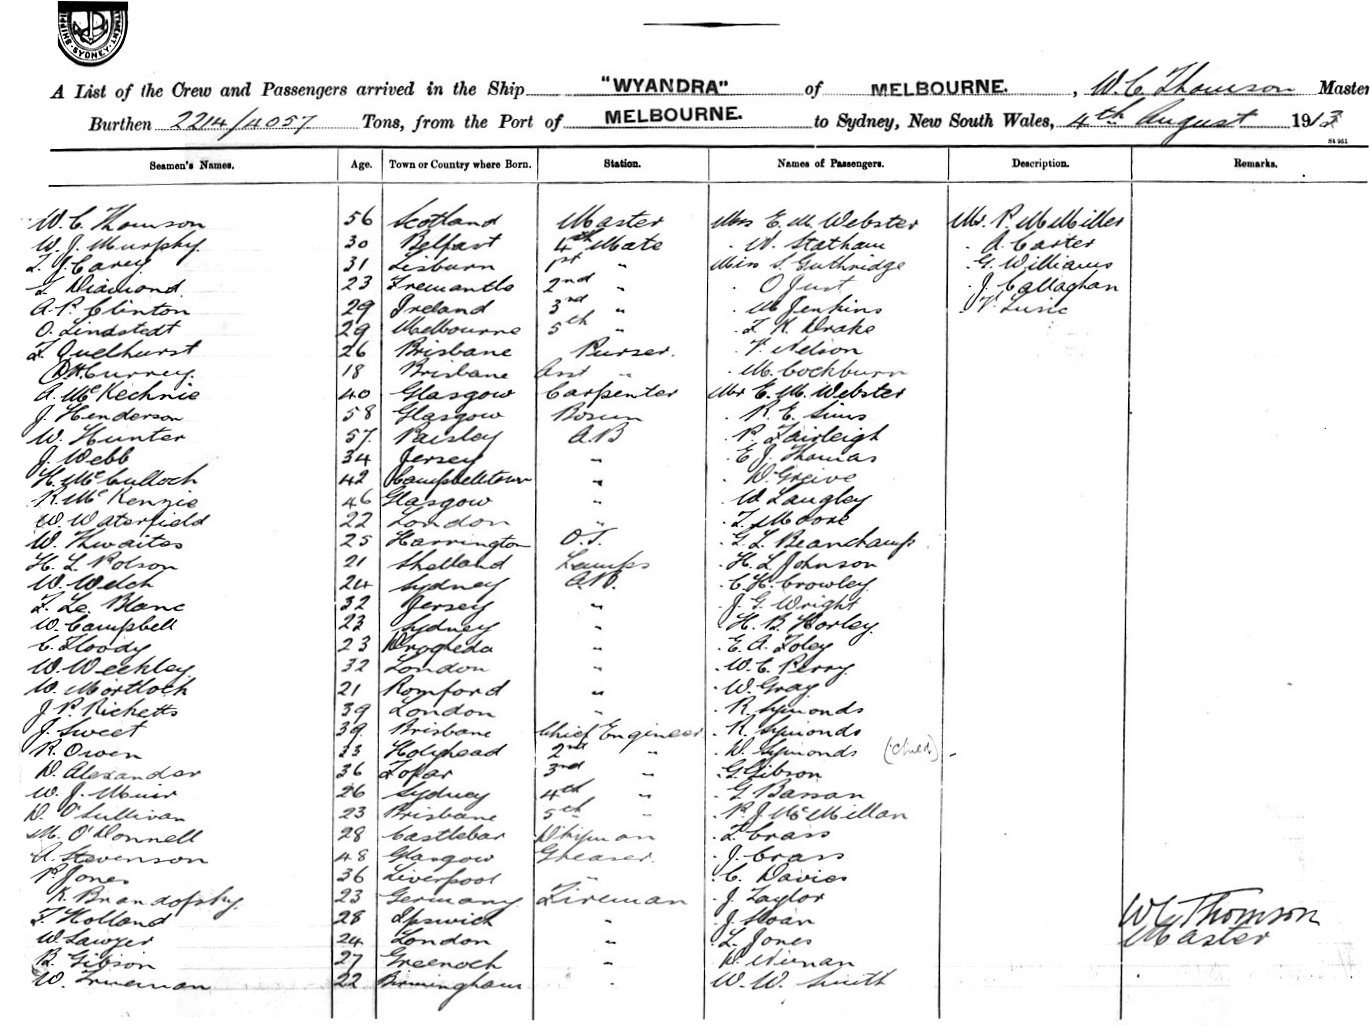 SYDNEY
A List of the Crew and Passengers arrived in the Ship "WYANDRA" of MELBOURNE. , W. C. Thomson Master
Burthen 2214/4057 Tons, from the Port of MELBOURNE. to Sydney, New South Wales, 4th August 1913
Seamen's Names. Age. Town or Country where Born. Station. Names of Passengers. Description. Remarks.
W. C. Thomson 56 Scotland Master Mrs E. M. Webster Mr. P. McMiller
W. J. Murphy 30 Belfast 4th Mate . W. Statham . A. Carter
T. J. Carey 31 Lisburn 1st " Miss S. Guthridge . G. Williams
T. Diamond 23 Fremantle 2nd " . O Just . J. Callaghan
A. P. Clinton 29 Ireland 3rd " . M Jenkins
O. Lindstedt 29 Melbourne 5th " . F. K. Drake
26 Brisbane Purser. . F. Nelson
Currey 18 Brisbane Asst " . M. Cockburn
A. McKechnie 40 Glasgow Carpenter Mr E. M. Webster
J. Henderson 58 Glasgow Bosun . R. E. Sims
W. Hunter 57 Paisley A.B . P. Fairleigh
J. Webb 34 Jersey " . E. J. Thomas
H. McCulloch 42 Campbelltown " . D. Greive
R. McKenzie 46 Glasgow " . W. Langley
W. Waterfield 22 London " . F. Moore
W. Thwaites 25 Harrington O.S. . G. L. Beauchamp.
H. L. Rolson 21 Shetland Lamps . H. L Johnson
W. Welch 24 Sydney A.B. . C. H. Crowley
F. Le. Blanc 32 Jersey " . J. G. Wright
W. Campbell 23 Sydney " . H. B. Horley.
C. Floody 23 Drogheda " . E. A. Foley
W. Weekley 32 London " . W. C. Perry
W. Mortlock 21 Romford " . W. Gray
J. P. Ricketts 39 London " . R. Symonds
J. Sweet 39 Brisbane Chief Engineer . R. Symonds
R. Owen 33 Holyhead 2nd " . D. Symonds (Child)
D. Alexander 36 3rd " . G. Gibson
W. J. Muir 26 Sydney 4th " . G. Bassan
D. O'Sullivan 23 Brisbane 5th " . P. J. McMillan
M. O'Donnell 28 Castlebar . F. Crass
A. Stevenson 48 Glasgow Greaser. . J. Crass
P. Jones 36 Liverpool " . C. Davies
K. Brandofsky. 23 Germany Fireman . J. Taylor
F. Holland 28 Ipswich " . J. Sloan
W. Sawyer 24 London " . L. Jones
B. Gibson 27 Greenock " . D.
W. Trueman 22 Birmingham . W. W. Smith
W C Thomson
Master